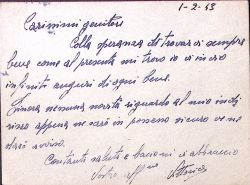 1-2-43
Carissimi genitori
Colla speranza di trovarvi sempre
bene come al presente mi trovo io vi invio
infiniti auguri di ogni bene.
Finora nessuna novità riguardo al mio indi
rizzo appena ne sarò in possesso sicuro ve ne
darò avviso.
Continui saluti e bacioni vi abbraccio
Vostro aff.mo